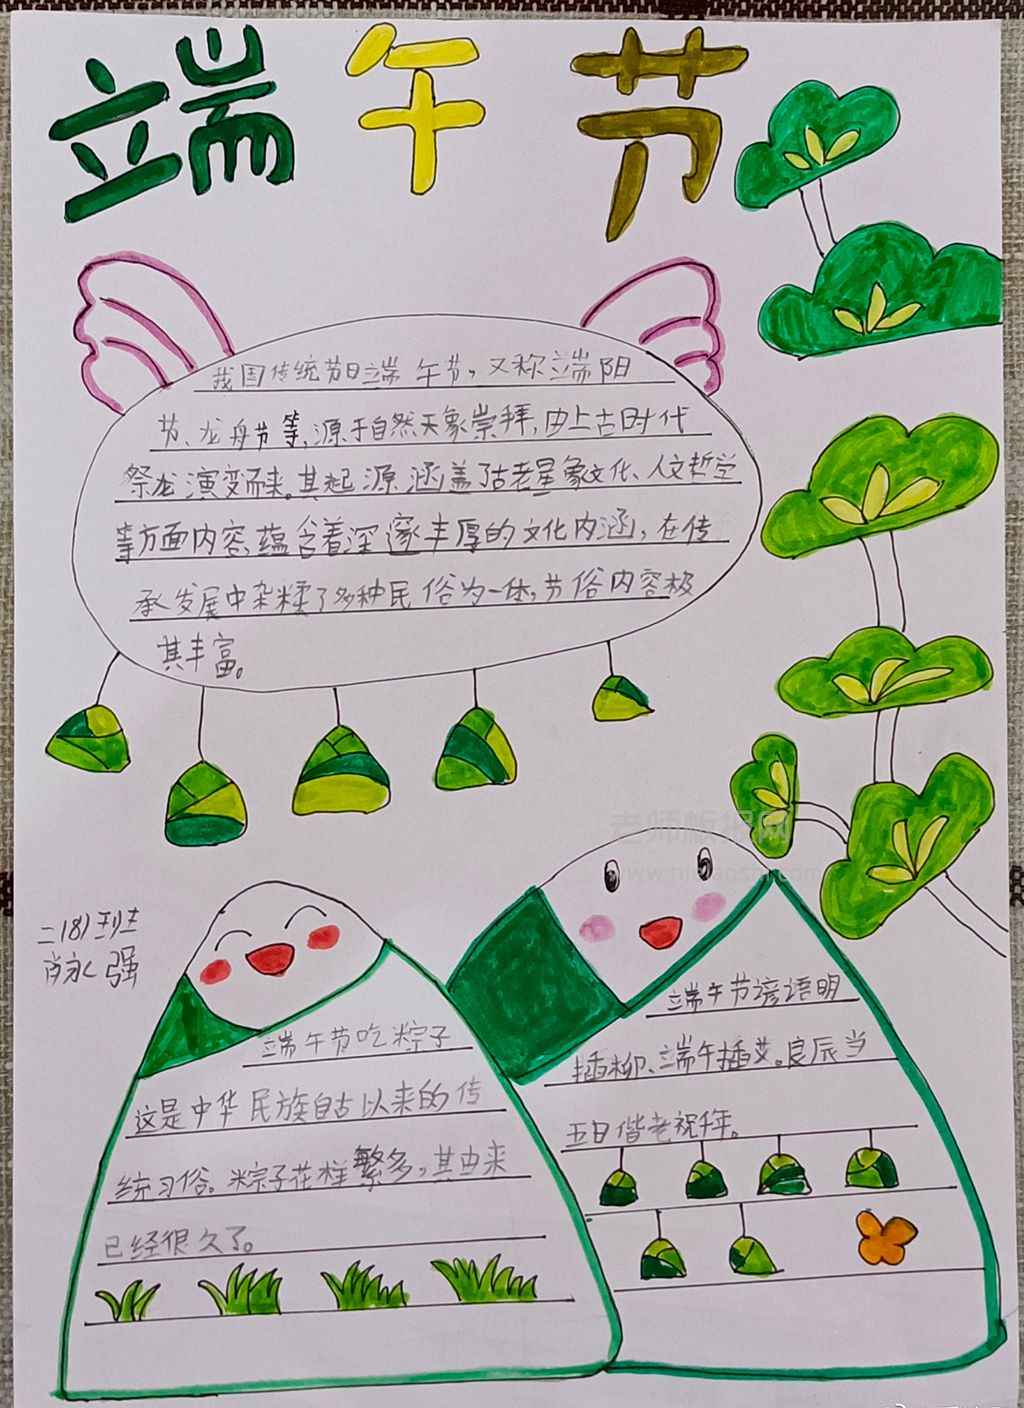 端午节
我国传统节日端午节，又称端阳
节、龙舟节等，源于自然天象崇拜，由上古时代
祭龙演变而来。其起源涵盖了古老星象文化、人文哲学
等方面内容，蕴含着深邃丰厚的文化内涵，在传
承发展中杂糅了多种民俗为一体，节俗内容极
其丰富。
老师板报网
二(8)班
肖永强
端午节吃粽子
这是中华民族自古以来的传
统习俗。粽子花样繁多，其由来
已经很久了。
端午节谚语明
插柳、端午插艾。良辰当
五日偕老祝千年。